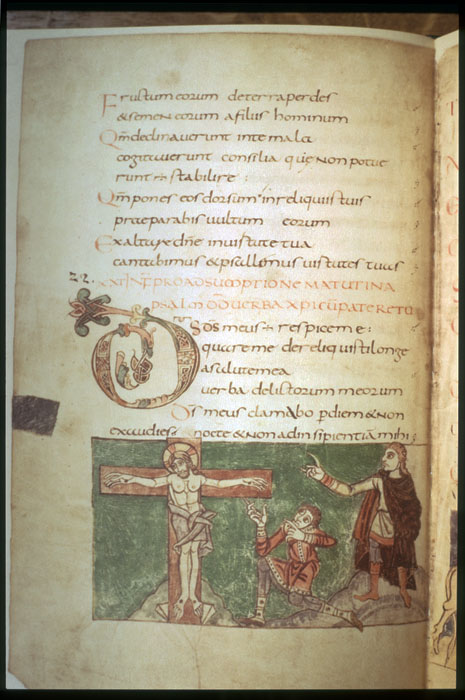 Fructum eorum deterra perdes
& semen eorum afiliis hominum
Qm̄ declinaverunt inte mala
cogitaverunt consilia quae non potue
runt stabilire
Qm̄ pones eos dorsum inreliquiis tuis
praeparabis vultum eorum
Exaltare dn̄e invirtute tua
cantabimus & psallemus virtutes tuas
XXI INT PRO ADSUMPTIONE MATUTINA
PSALM VERBA XPI CU PATRE
DS DS meus respice me
quare me dereliquisti longe
asalute mea
verba delictorum meorum
DS meus clamabo p diem & non
exaudies nocte & non adinsipientiā mihi